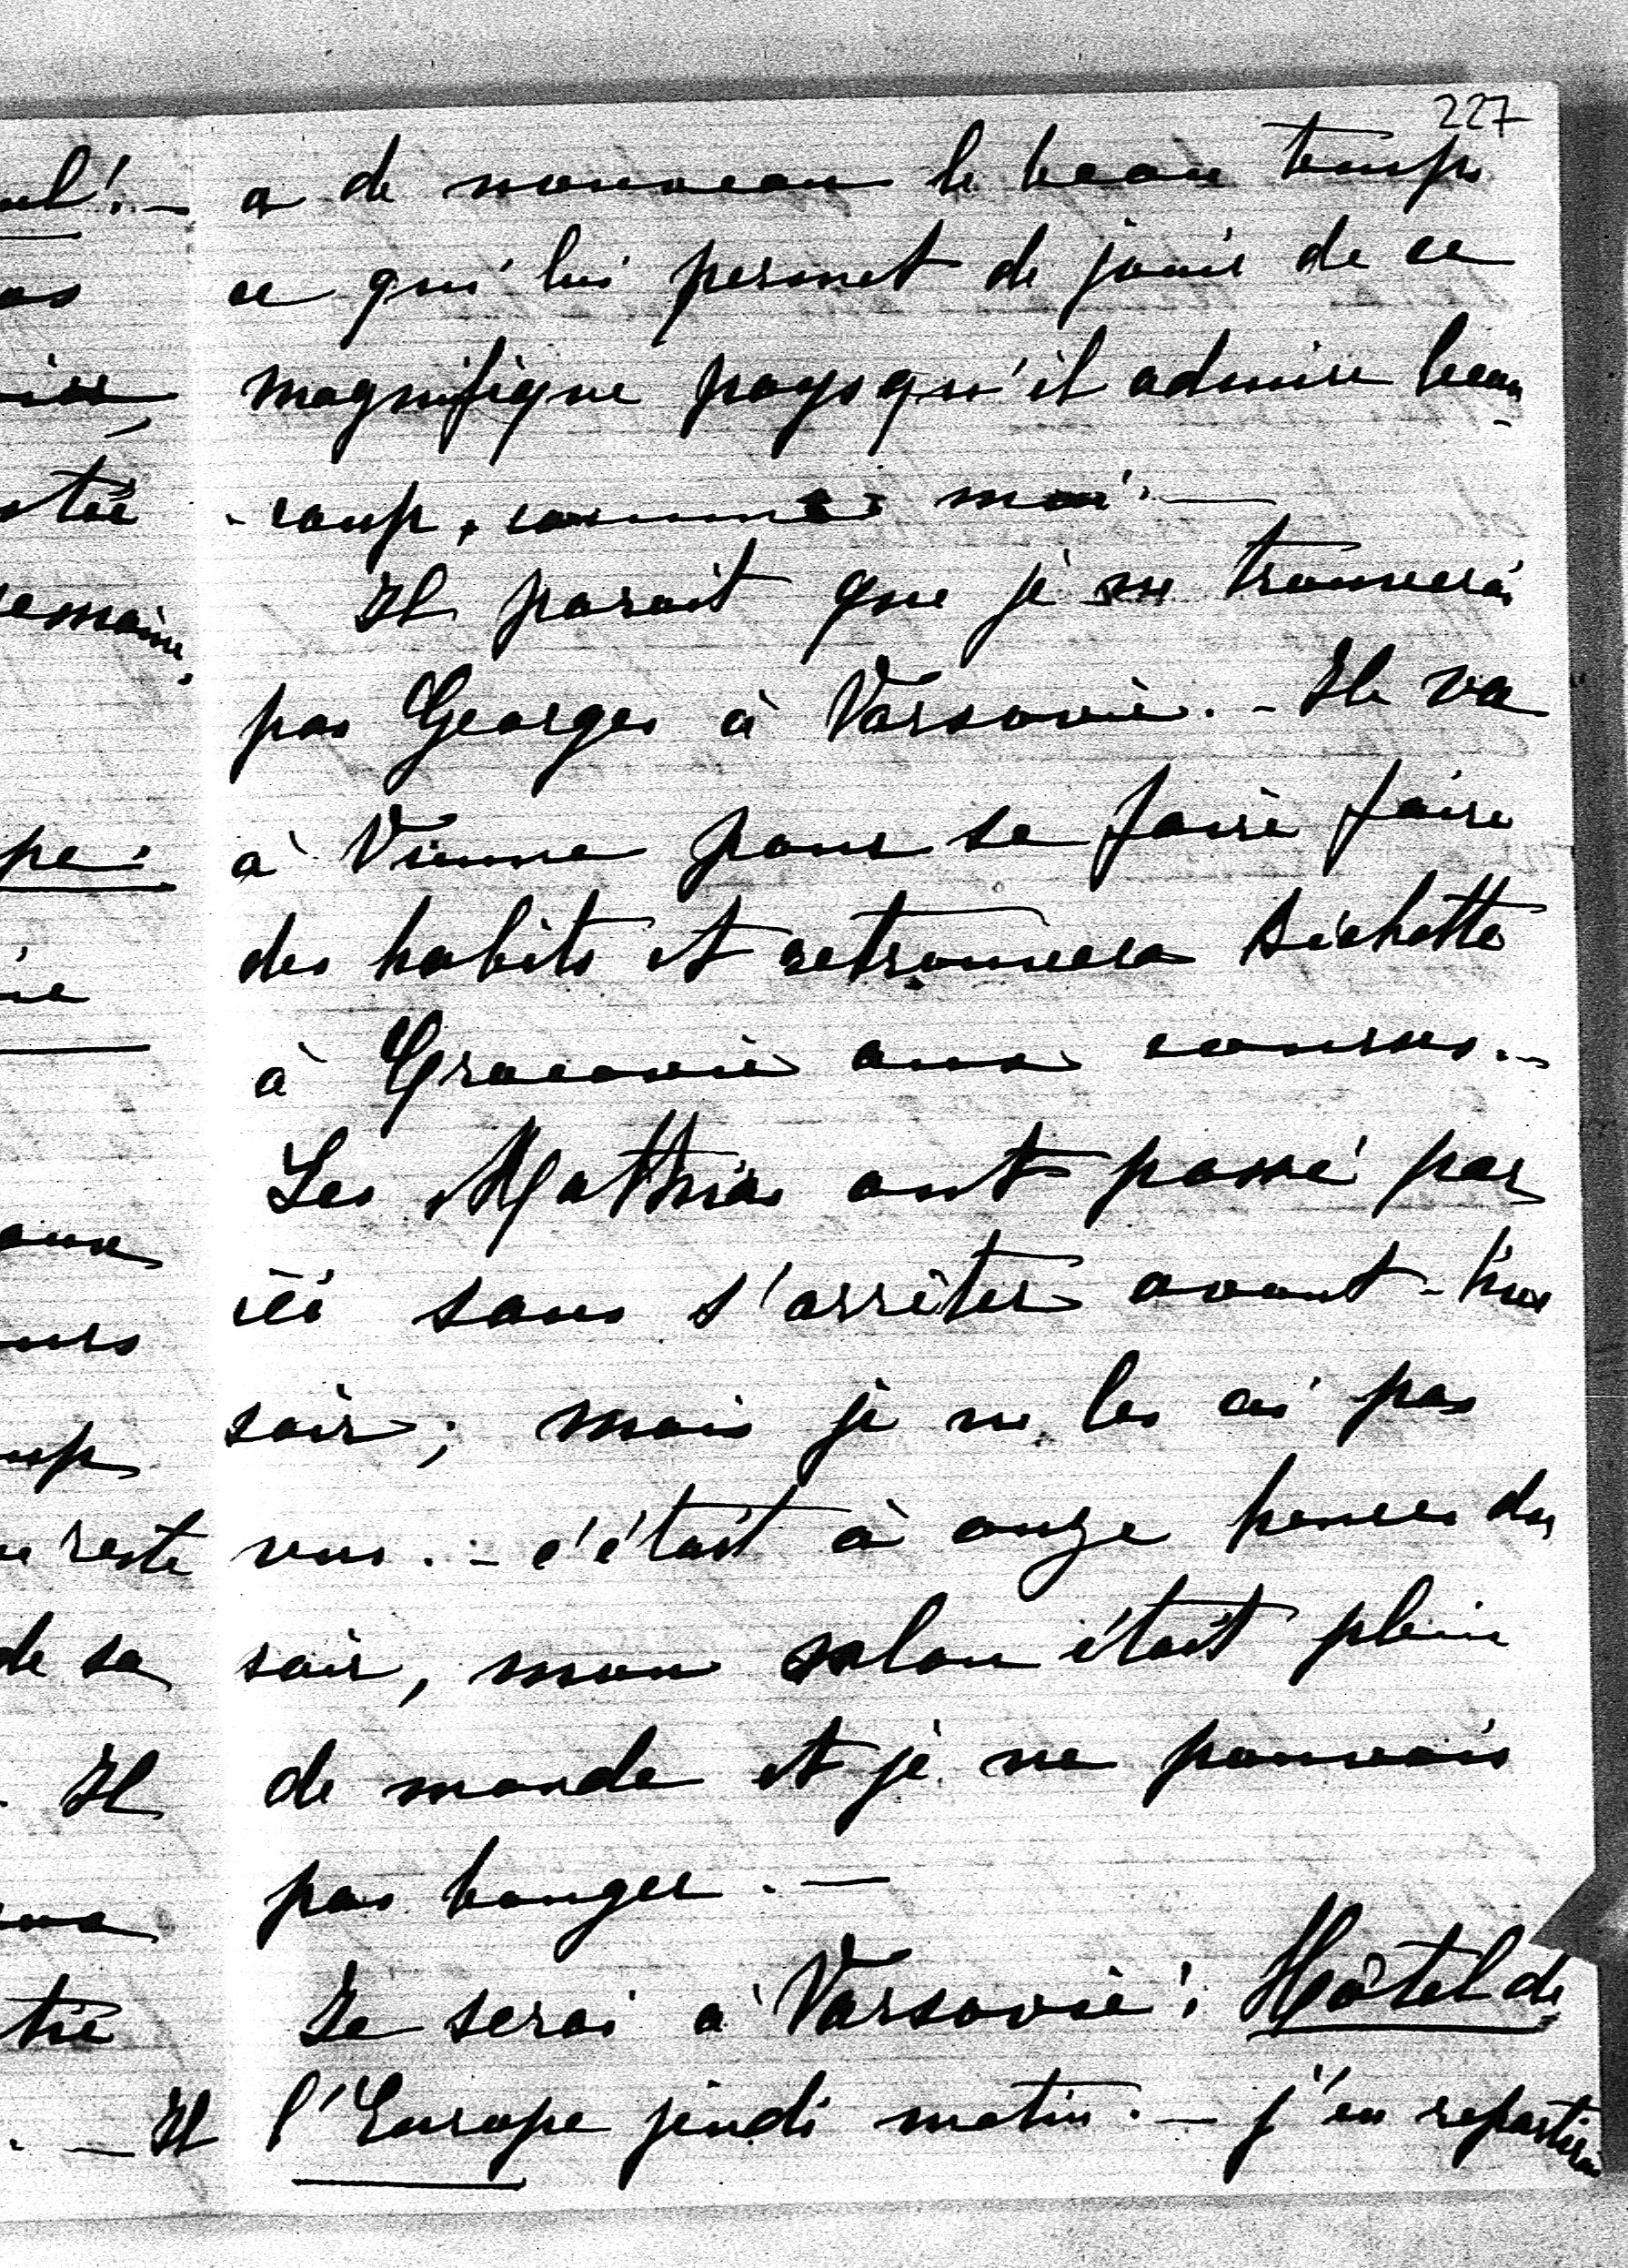 227
a de nouveau le beau temps
ce qui lui permet de jouir de ce
magnifique pays qu'il admire beau-
-coup, comme moi. —
Il parait que je ne trouverai
pas Georges à Varsovie. - Il va
à Vienne pour se faire faire
des habits et retrouvera Bichette
à Cracovie aux courses. -
Les Mathias ont passé par
ici sans s'arrêter avant-hier
soir; mais je ne les ai pas
vus. - c'était à onze heures du
soir, mon salon était plein
de monde et je ne pouvais
pas bouger. —
Je serai à Varsovie: Hôtel de
l'Europe jeudi matin. - j'en repartirai